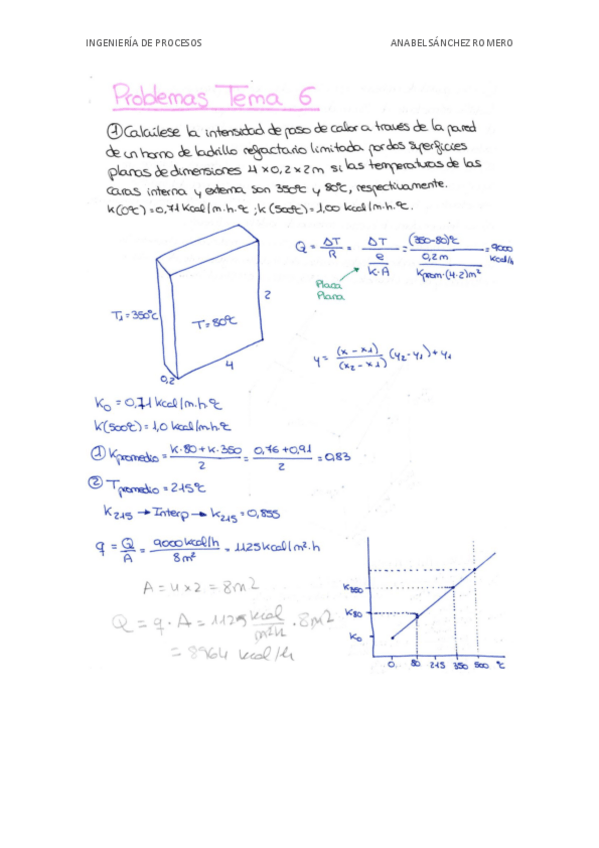 INGENIERÍA DE PROCESOS ANABEL SÁNCHEZ ROMERO
Problemas Tema 6
① Calcúlese la intensidad de paso de calor a través de la pared
de un horno de ladrillo refractario limitada por dos superficies
planas de dimensiones 4 x 0,2 x 2m si las temperaturas de las
caras interna y externa son 350ºC y 80ºC, respectivamente.
K(0ºC) = 0,71 Kcal/m.h.ºC ; K(500ºC) = 1,00 kcal/m.h.ºC.
Q = ΔT/R = ΔT/(e/(K·A)) = (350-80)ºC/(0,2m/(Kprom·(4·2)m²)) = 9000 kcal/h
Placa
Plana
T₁ = 350ºC
T = 80ºC
2
4
0,2
y = (x - x₁)/(x₂ - x₁) (y₂ - y₁) + y₁
K₀ = 0,71 kcal/m.h.ºC
K(500ºC) = 1,0 kcal/m.h.ºC
① Kpromedio = (K·80 + K·350)/2 = (0,76 + 0,91)/2 = 0,83
② Tpromedio = 215ºC
K₂₁₅ → Interp → K₂₁₅ = 0,835
q = Q/A = 9000 kcal/h / 8m² = 1125 kcal/m².h
A = 4 x 2 = 8m2
Q = q · A = 1125 kcal/m²h · 8m2
= 8964 kcal/h
K₃₅₀
K₈₀
K₀
0 80 215 350 500 ºC